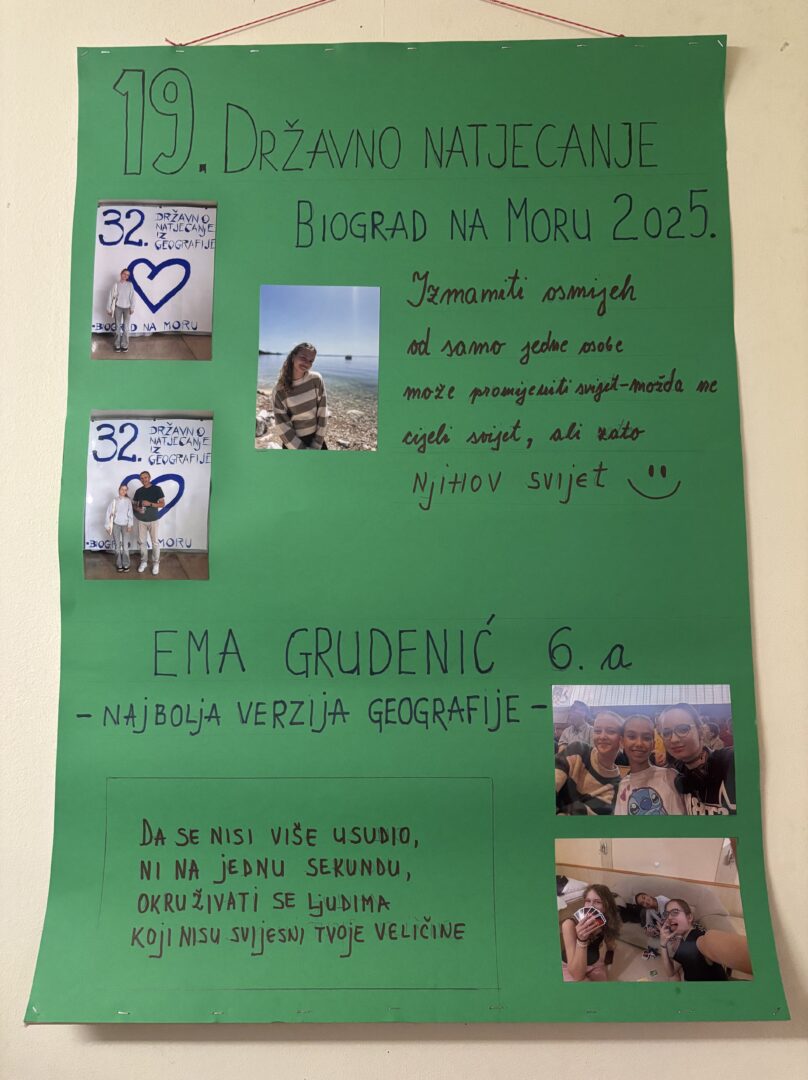 19. DRŽAVNO NATJECANJE
BIOGRAD NA MORU 2025.
32. DRŽAVNO
NATJECANJE
IZ
GEOGRAFIJE
-BIOGRAD NA MORU
Izmamiti osmijeh
od samo jedne osobe
može promijeniti svijet-možda ne
cijeli svijet, ali zato
NJIHOV SVIJET
32. DRŽAVNO
NATJECANJE
IZ
GEOGRAFIJE
NA MORU
EMA GRUDENIĆ 6. a
- NAJBOLJA VERZIJA GEOGRAFIJE -
DA SE NISI VIŠE USUDIO,
NI NA JEDNU SEKUNDU,
OKRUŽIVATI SE LJUDIMA
KOJI NISU SVIJESNI TVOJE VELIČINE